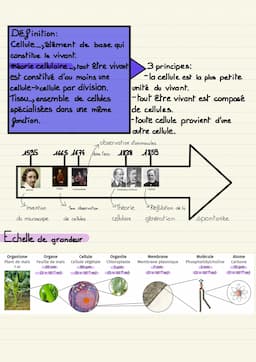 Définition:
Cellule→élément de base qui
constitue le vivant.
théorie cellulaire→tout être vivant
est constitué d'au moins une
cellule→cellule par division.
Tissu→ensemble de cellules
spécialisées dans une même
fonction.
3 principes:
-la cellule est la plus petite
unité du vivant.
-tout être vivant est composé
de cellules.
-toute cellule provient d'une
autre cellule.
observation d'animalcules
dans l'eau
1595 1665 1674 1838 1859
invention
du microscope
1ère observation
de cellules
Théorie
cellulaire
Réfutation de la
génération spontanée
Echelle de grandeur
Organisme Organe Cellule Organite Membrane Molécule Atome
Plant de maïs Feuille de maïs Cellule végétale Chloroplaste Membrane plasmique Phosphatidylcholine Carbone